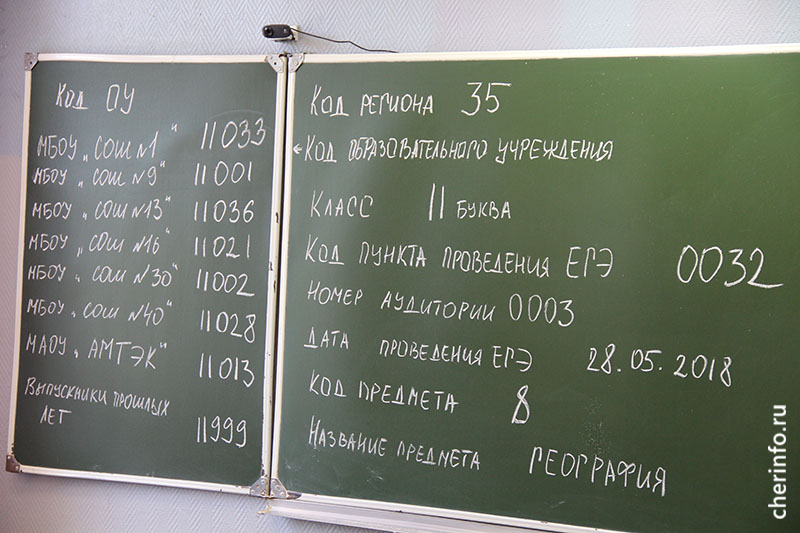 Код ОУ
МБОУ „СОШ №1“ 11033
МБОУ „СОШ №9“ 11001
МБОУ „СОШ №13“ 11036
МБОУ „СОШ №16“ 11021
МБОУ „СОШ №30“ 11002
МБОУ „СОШ №40“ 11028
МАОУ „АМТЭК“ 11013
Выпускники прошлых
лет 11999
Код региона 35
Код образовательного учреждения
Класс 11 буква
Код пункта проведения ЕГЭ 0032
Номер аудитории 0003
Дата проведения ЕГЭ 28.05.2018
Код предмета 8
Название предмета География
cherinfo.ru